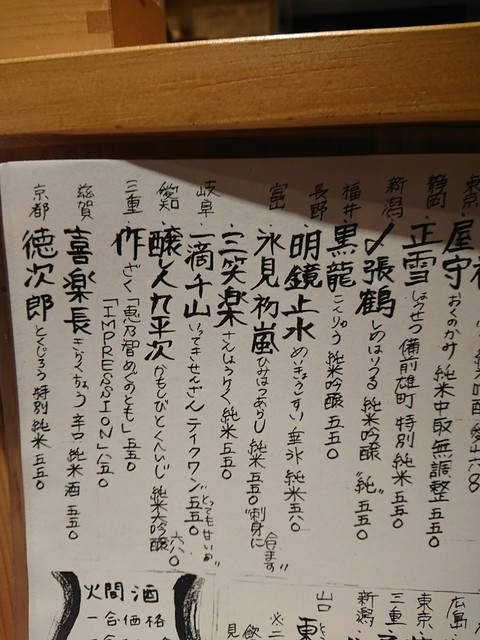 東京
屋守 おくのかみ 純米中取無調整 五五〇
静岡・正雪 しょうせつ 備前雄町 特別純米 五五〇
新潟・〆張鶴 しめはりつる 純米吟醸 "純" 五五〇
福井・黒龍 こくりゅう 純米吟醸 五五〇
長野・明鏡止水 めいきょうしすい 垂氷 純米 五八〇
富山・氷見 初嵐 ひみはつあらし 純米 五五〇 "刺身に合ます"
三笑楽 さんしょうらく 純米 五五〇
岐阜・一滴千山 いってきせんざん テイクワン 五五〇 "とっても甘いよ"
愛知・醸し人九平次 かもしびとくへいじ 純米大吟醸 六八〇
三重・作 ざく「恵乃智 めぐみのとも」五五〇
「IMPRESSION」六五〇
滋賀・喜楽長 きらくちょう 辛口 純米酒 五五〇
京都・徳次郎 とくじろう 特別純米 五五〇
広島
東京
三重
新潟
山口
※二
飲
見
火間酒
一合価格